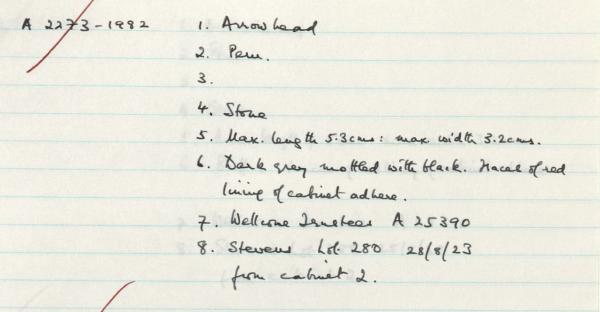 A 2273-1982 1. Arrowhead
2. Peru.
3.
4. Stone
5. Max. length 5.3cms: max width 3.2cms.
6. Dark grey mottled with black. Traces of red
lining of cabinet adhere.
7. Wellcome Trustees A 25390
8. Stevens Lot 280 28/8/23
from cabinet 2.